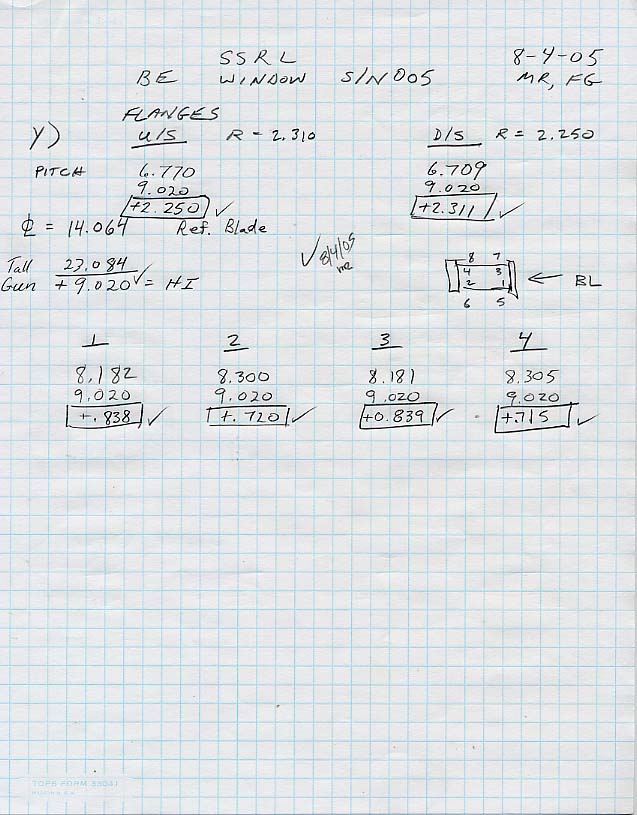 SSRL 8-4-05
BE WINDOW S/N 005 MR, FG
FLANGES
Y) U/S R - 2.310 D/S R = 2.250
PITCH 6.770 6.709
9.020 9.020
+2.250 ✓ +2.311 ✓
℄ = 14.064 Ref. Blade
✓ 8/4/05
MR
Tall 23.084
Gun + 9.020 ✓ = HI
8 7
4 3
2 1
6 5
← BL
1 2 3 4
8.182 8.300 8.181 8.305
9.020 9.020 9.020 9.020
+.838 ✓ +.720 ✓ +0.839 ✓ +.715 ✓
TOPS FORM 35041